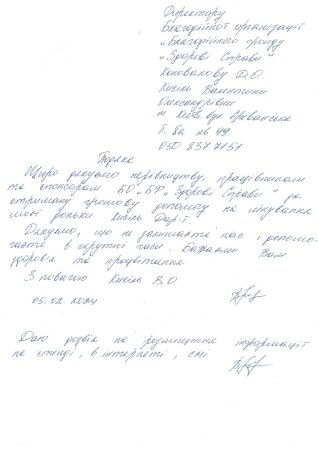 Директору
Благодійної організації
„Благодійного фонду
„Здорові Справи"
Коновалову Д.О.
Кисіль Валентини
Олександрівни
м. Київ вул. Ереванська
б. 8а кв 49
050 8377151
Подяка
Щиро дякуємо керівництву, працівникам
та спонсорам БО „БФ „Здорові Справи" за
отриману грошову допомогу на лікування
моєї доньки Кисіль Дар'ї.
Дякуємо, що не залишаєте нас і допома-
гаєте в скрутні часи. Бажаємо Вам
здоров'я та процвітання.
З повагою Кисіль В.О.
05.02.2024
Даю дозвіл на розміщення інформації
на стенді, в інтернеті, смі